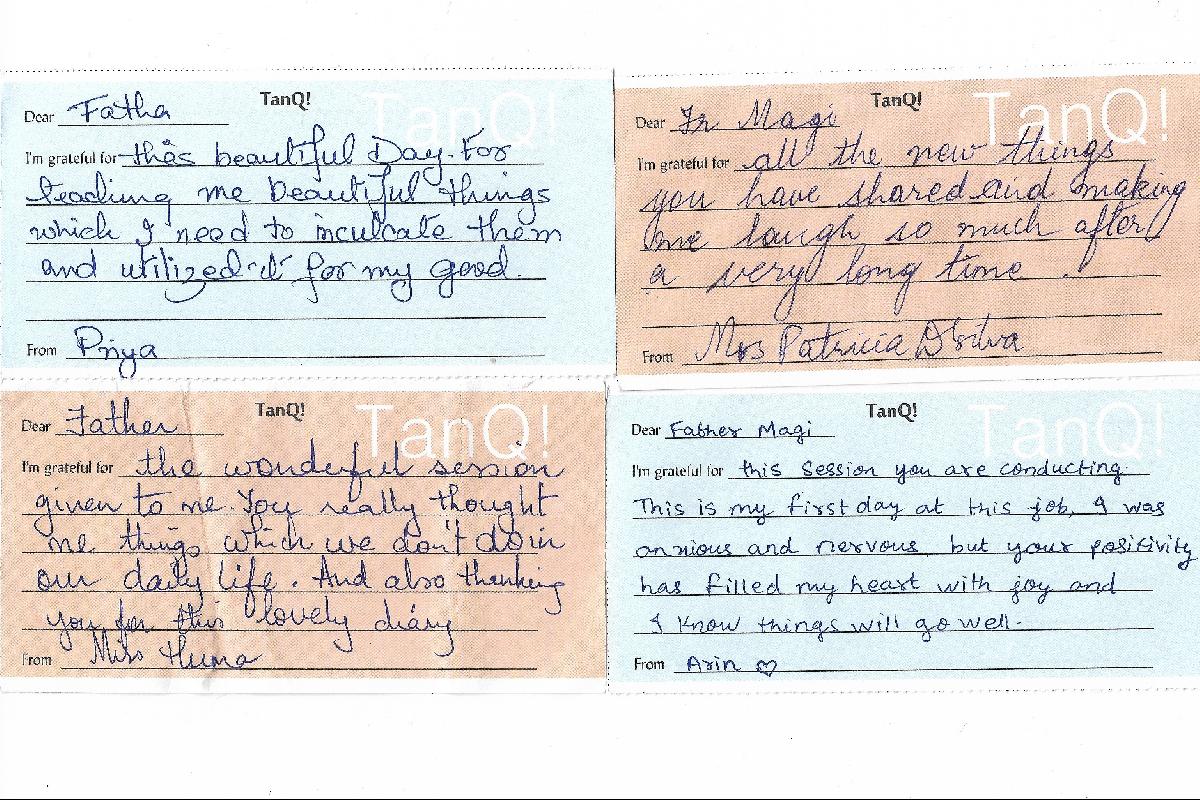 TanQ!
TanQ!
Dear Father
I'm grateful for this beautiful Day. For
teaching me beautiful things
which I need to inculcate them
and utilized it for my good.
From Priya
TanQ!
TanQ!
Dear Fr Magi
I'm grateful for all the new things
you have shared and making
me laugh so much after
a very long time.
From Mrs Patricia D'silva
TanQ!
TanQ!
Dear Father
I'm grateful for the wonderful session
given to me. You really thought
me things which we don't do in
our daily life. And also thanking
you for this lovely diary
From Miss Huma
TanQ!
TanQ!
Dear Father Magi
I'm grateful for this session you are conducting.
This is my first day at this job, I was
anxious and nervous but your positivity
has filled my heart with joy and
I know things will go well.
From Arin